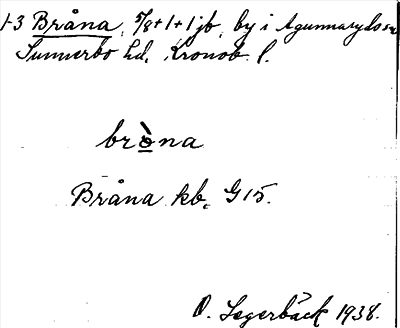 1-3 Bråna, 5/8+1+1 jb, by i Agunnaryds sn
Sunnerbo hd, Kronob. l.
bròna
Bråna kb, G15.
O. Lagerbäck 1938.